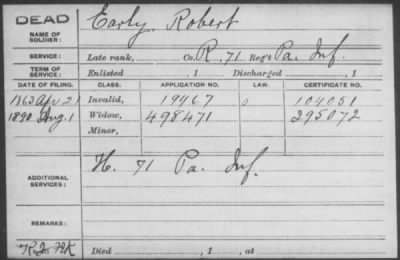 DEAD
NAME OF SOLDIER: Early, Robert
SERVICE: Late rank, Co. R, 71 Reg't Pa. Inf.
TERM OF SERVICE: Enlisted , 1 Discharged , 1
DATE OF FILING. CLASS. APPLICATION NO. LAW. CERTIFICATE NO.
1863 Apr 21 Invalid, 19467 0 104051
1890 Aug. 1 Widow, 498471 295072
Minor,
ADDITIONAL SERVICES: H. 71 Pa. Inf.
REMARKS:
Died , 1 , at